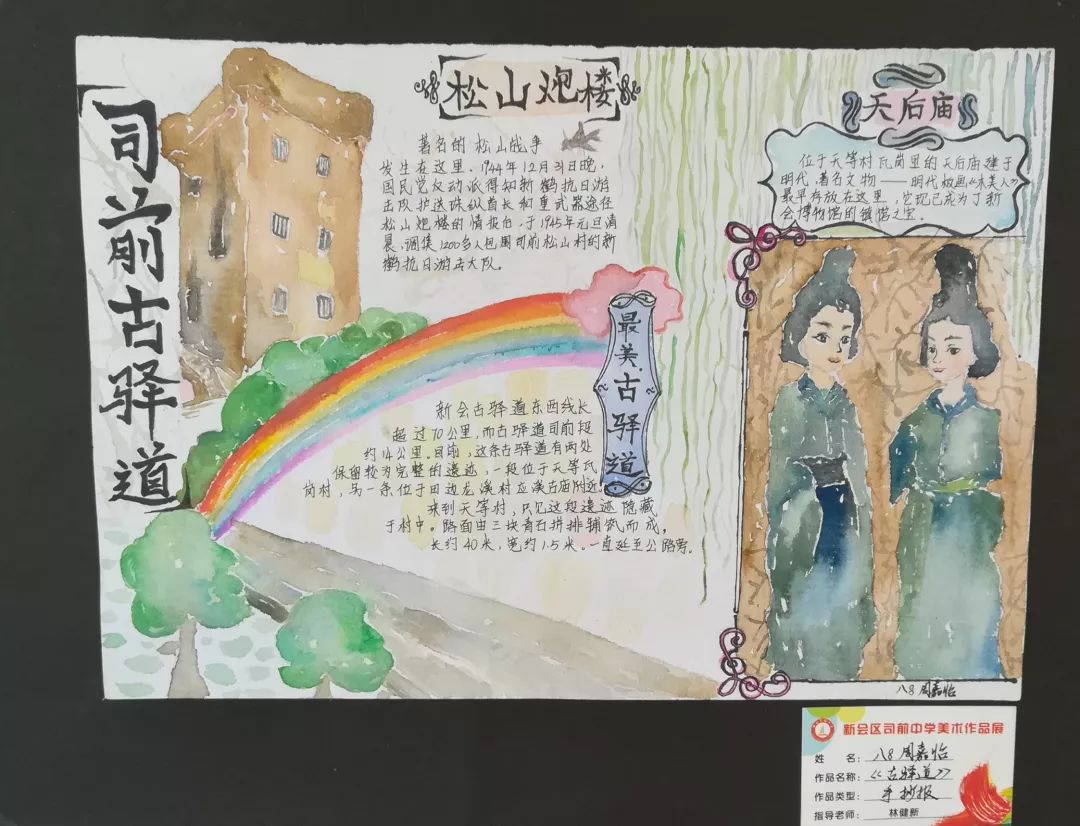 司前古驿道
松山炮楼
著名的松山战争
发生在这里.1944年12月31日晚,
国民党反动派得知新鹤抗日游
击队护送珠纵首长和重武器途径
松山炮楼的情报后,于1945年元旦清
晨,调集1200多人包围司前松山村的新
鹤抗日游击大队。
天后庙
位于天等村瓦岗里的天后庙建于
明代.著名文物——明代板画《木美人》
最早存放在这里,它现已成为了新
会博物馆的镇馆之宝.
最美古驿道
新会古驿道东西线长
超过70公里,而古驿道司前段
约14公里.目前,这条古驿道有两处
保留较为完整的遗迹,一段位于天等瓦
岗村,另一条位于田边龙溪村应溪古庙附近.
来到天等村,只见这段遗迹隐藏
于村中。路面由三块青石拼排铺筑而成,
长约40米,宽约1.5米.一直延至公路旁.
八8周嘉怡
新会区司前中学美术作品展
姓 名: 八8周嘉怡
作品名称:《古驿道》
作品类型: 手抄报
指导老师: 林健新